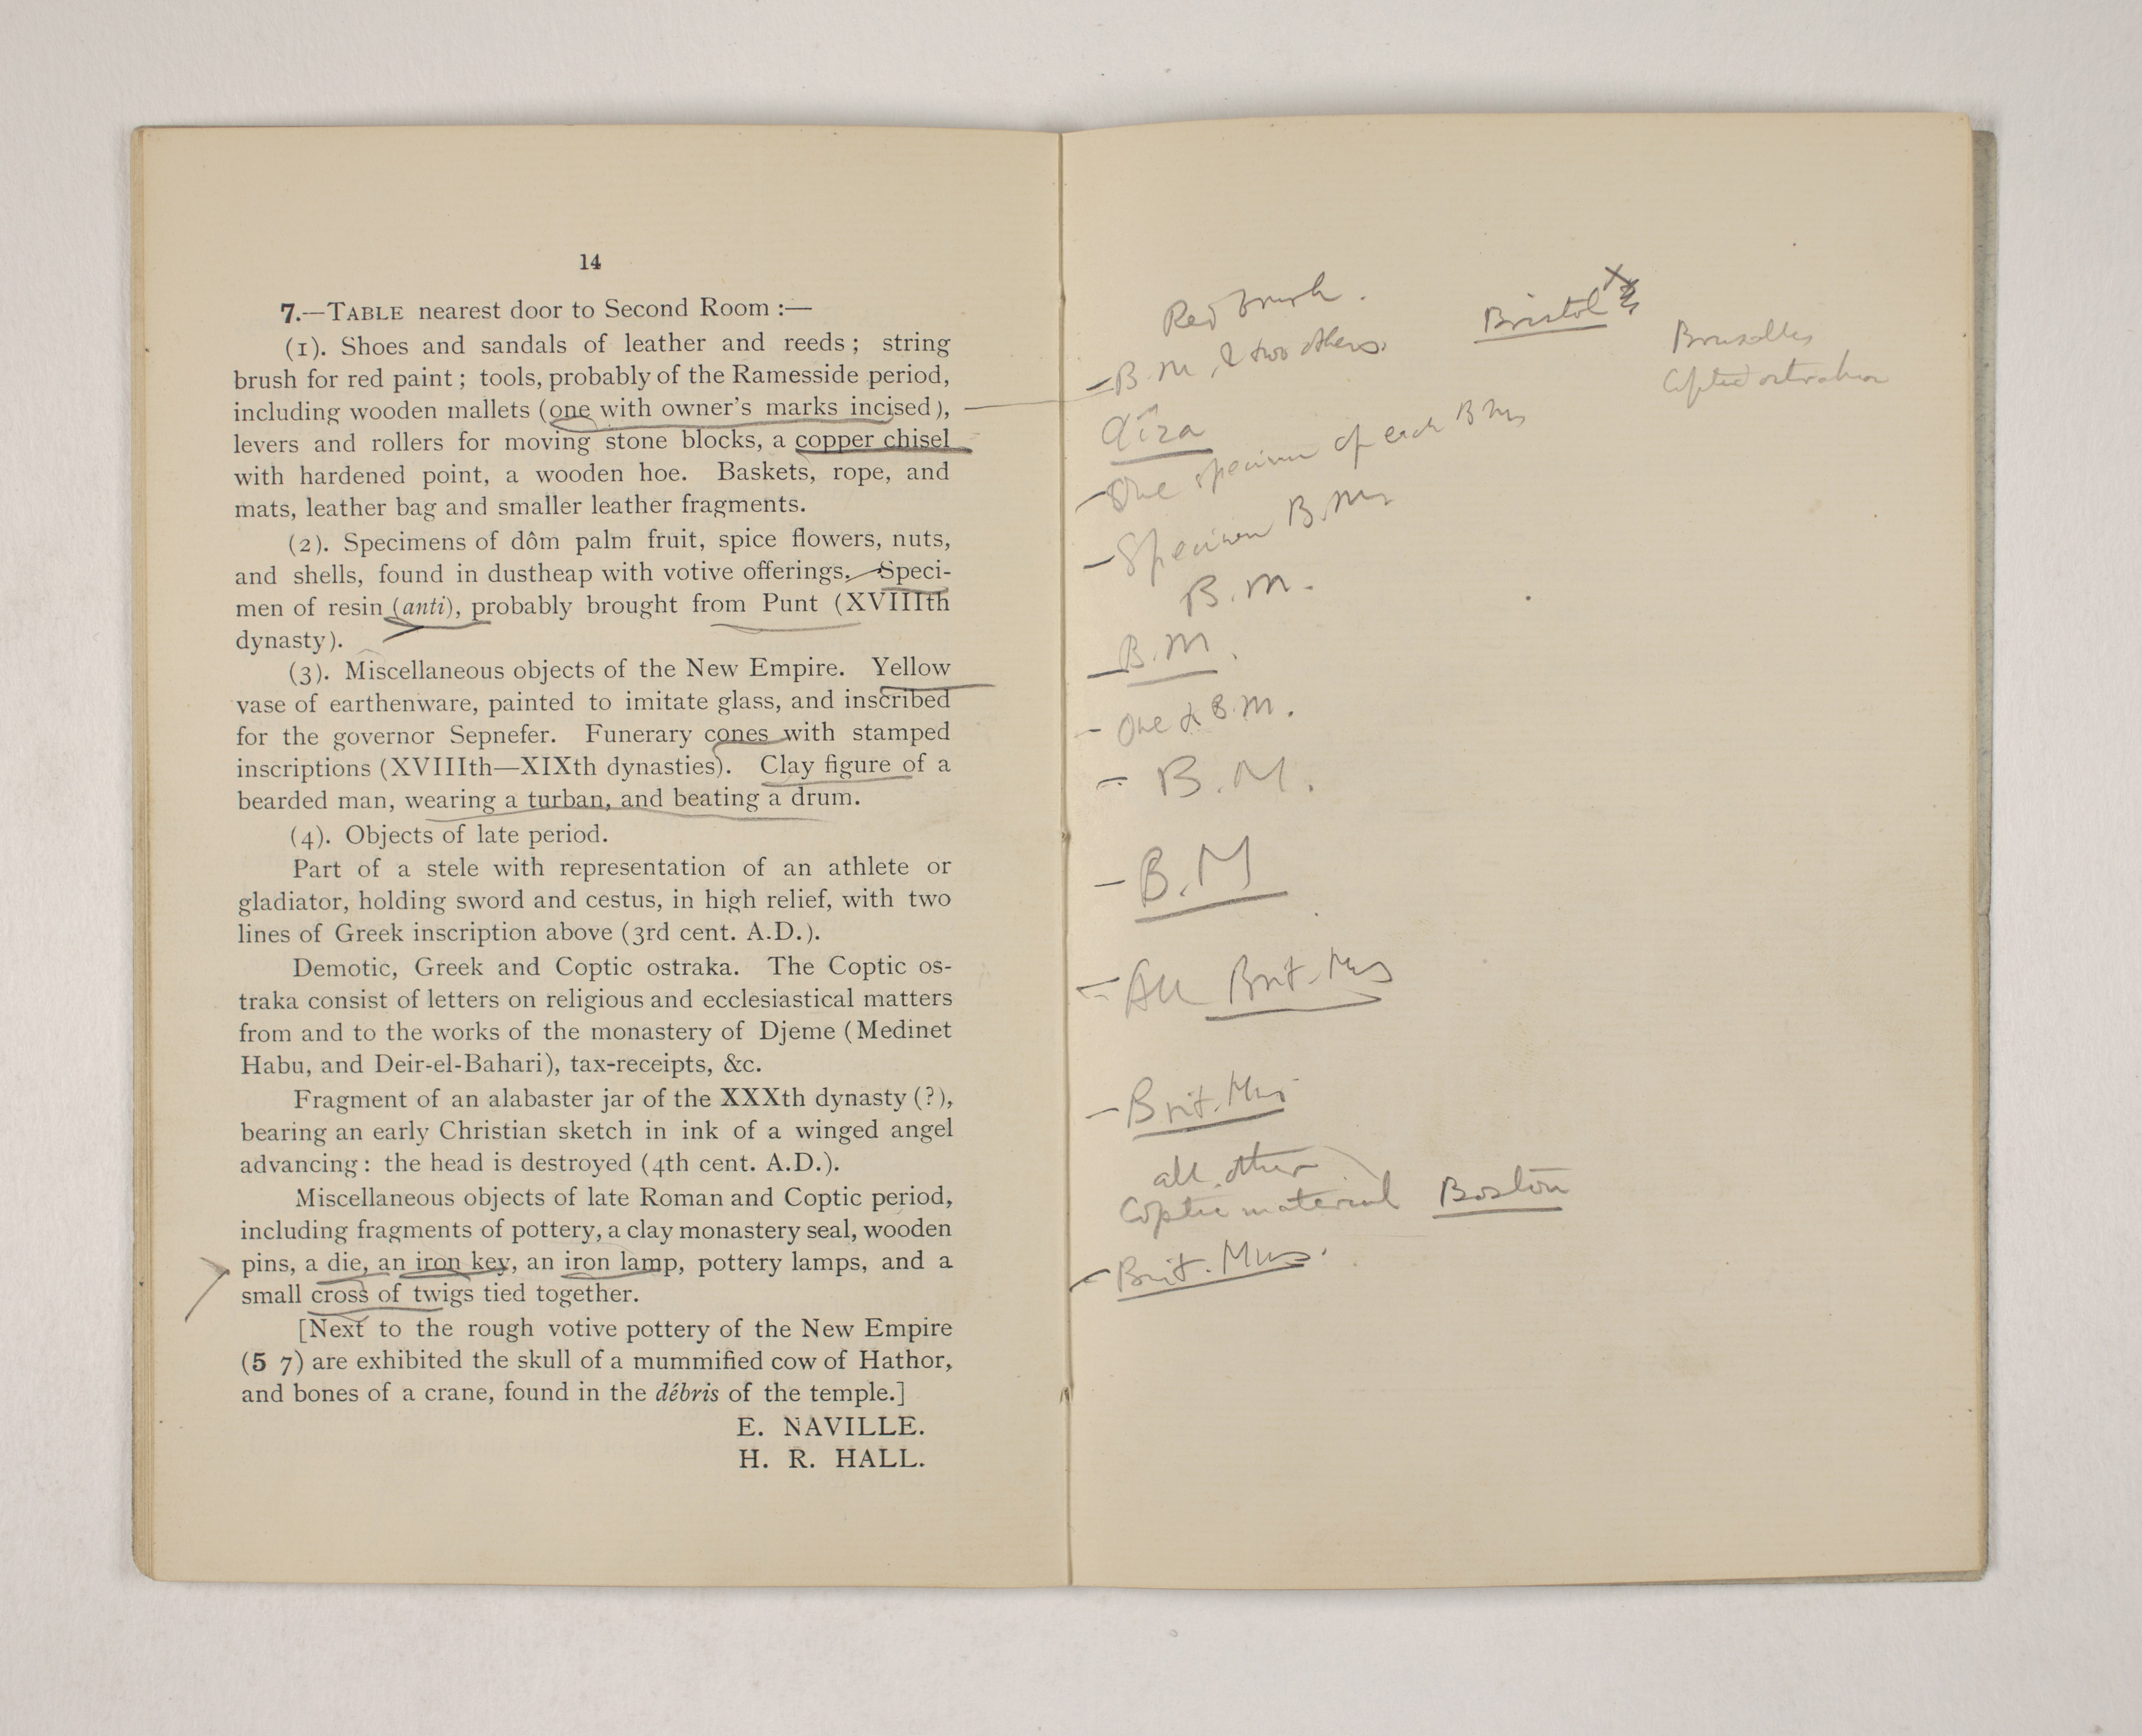 14
7.—TABLE nearest door to Second Room :—
(1). Shoes and sandals of leather and reeds ; string
brush for red paint ; tools, probably of the Ramesside period,
including wooden mallets (one with owner's marks incised),
levers and rollers for moving stone blocks, a copper chisel
with hardened point, a wooden hoe. Baskets, rope, and
mats, leather bag and smaller leather fragments.
(2). Specimens of dôm palm fruit, spice flowers, nuts,
and shells, found in dustheap with votive offerings. Speci-
men of resin (anti), probably brought from Punt (XVIIIth
dynasty).
(3). Miscellaneous objects of the New Empire. Yellow
vase of earthenware, painted to imitate glass, and inscribed
for the governor Sepnefer. Funerary cones with stamped
inscriptions (XVIIIth—XIXth dynasties). Clay figure of a
bearded man, wearing a turban, and beating a drum.
(4). Objects of late period.
Part of a stele with representation of an athlete or
gladiator, holding sword and cestus, in high relief, with two
lines of Greek inscription above (3rd cent. A.D.).
Demotic, Greek and Coptic ostraka. The Coptic os-
traka consist of letters on religious and ecclesiastical matters
from and to the works of the monastery of Djeme (Medinet
Habu, and Deir-el-Bahari), tax-receipts, &c.
Fragment of an alabaster jar of the XXXth dynasty (?),
bearing an early Christian sketch in ink of a winged angel
advancing : the head is destroyed (4th cent. A.D.).
Miscellaneous objects of late Roman and Coptic period,
including fragments of pottery, a clay monastery seal, wooden
pins, a die, an iron key, an iron lamp, pottery lamps, and a
small cross of twigs tied together.
[Next to the rough votive pottery of the New Empire
(5 7) are exhibited the skull of a mummified cow of Hathor,
and bones of a crane, found in the débris of the temple.]
E. NAVILLE.
H. R. HALL.
Red brush.
Bristol
Bruxelles
Coptic ostraka
– B.M, & two others.
– One specimen of each B Mus
– Specimen B. Mus
B.M.
– B.M.
– One to B.M.
– B.M.
– B.M
– All Brit. Mus
– Brit. Mus
all other
Coptic material Boston
– Brit. Mus.